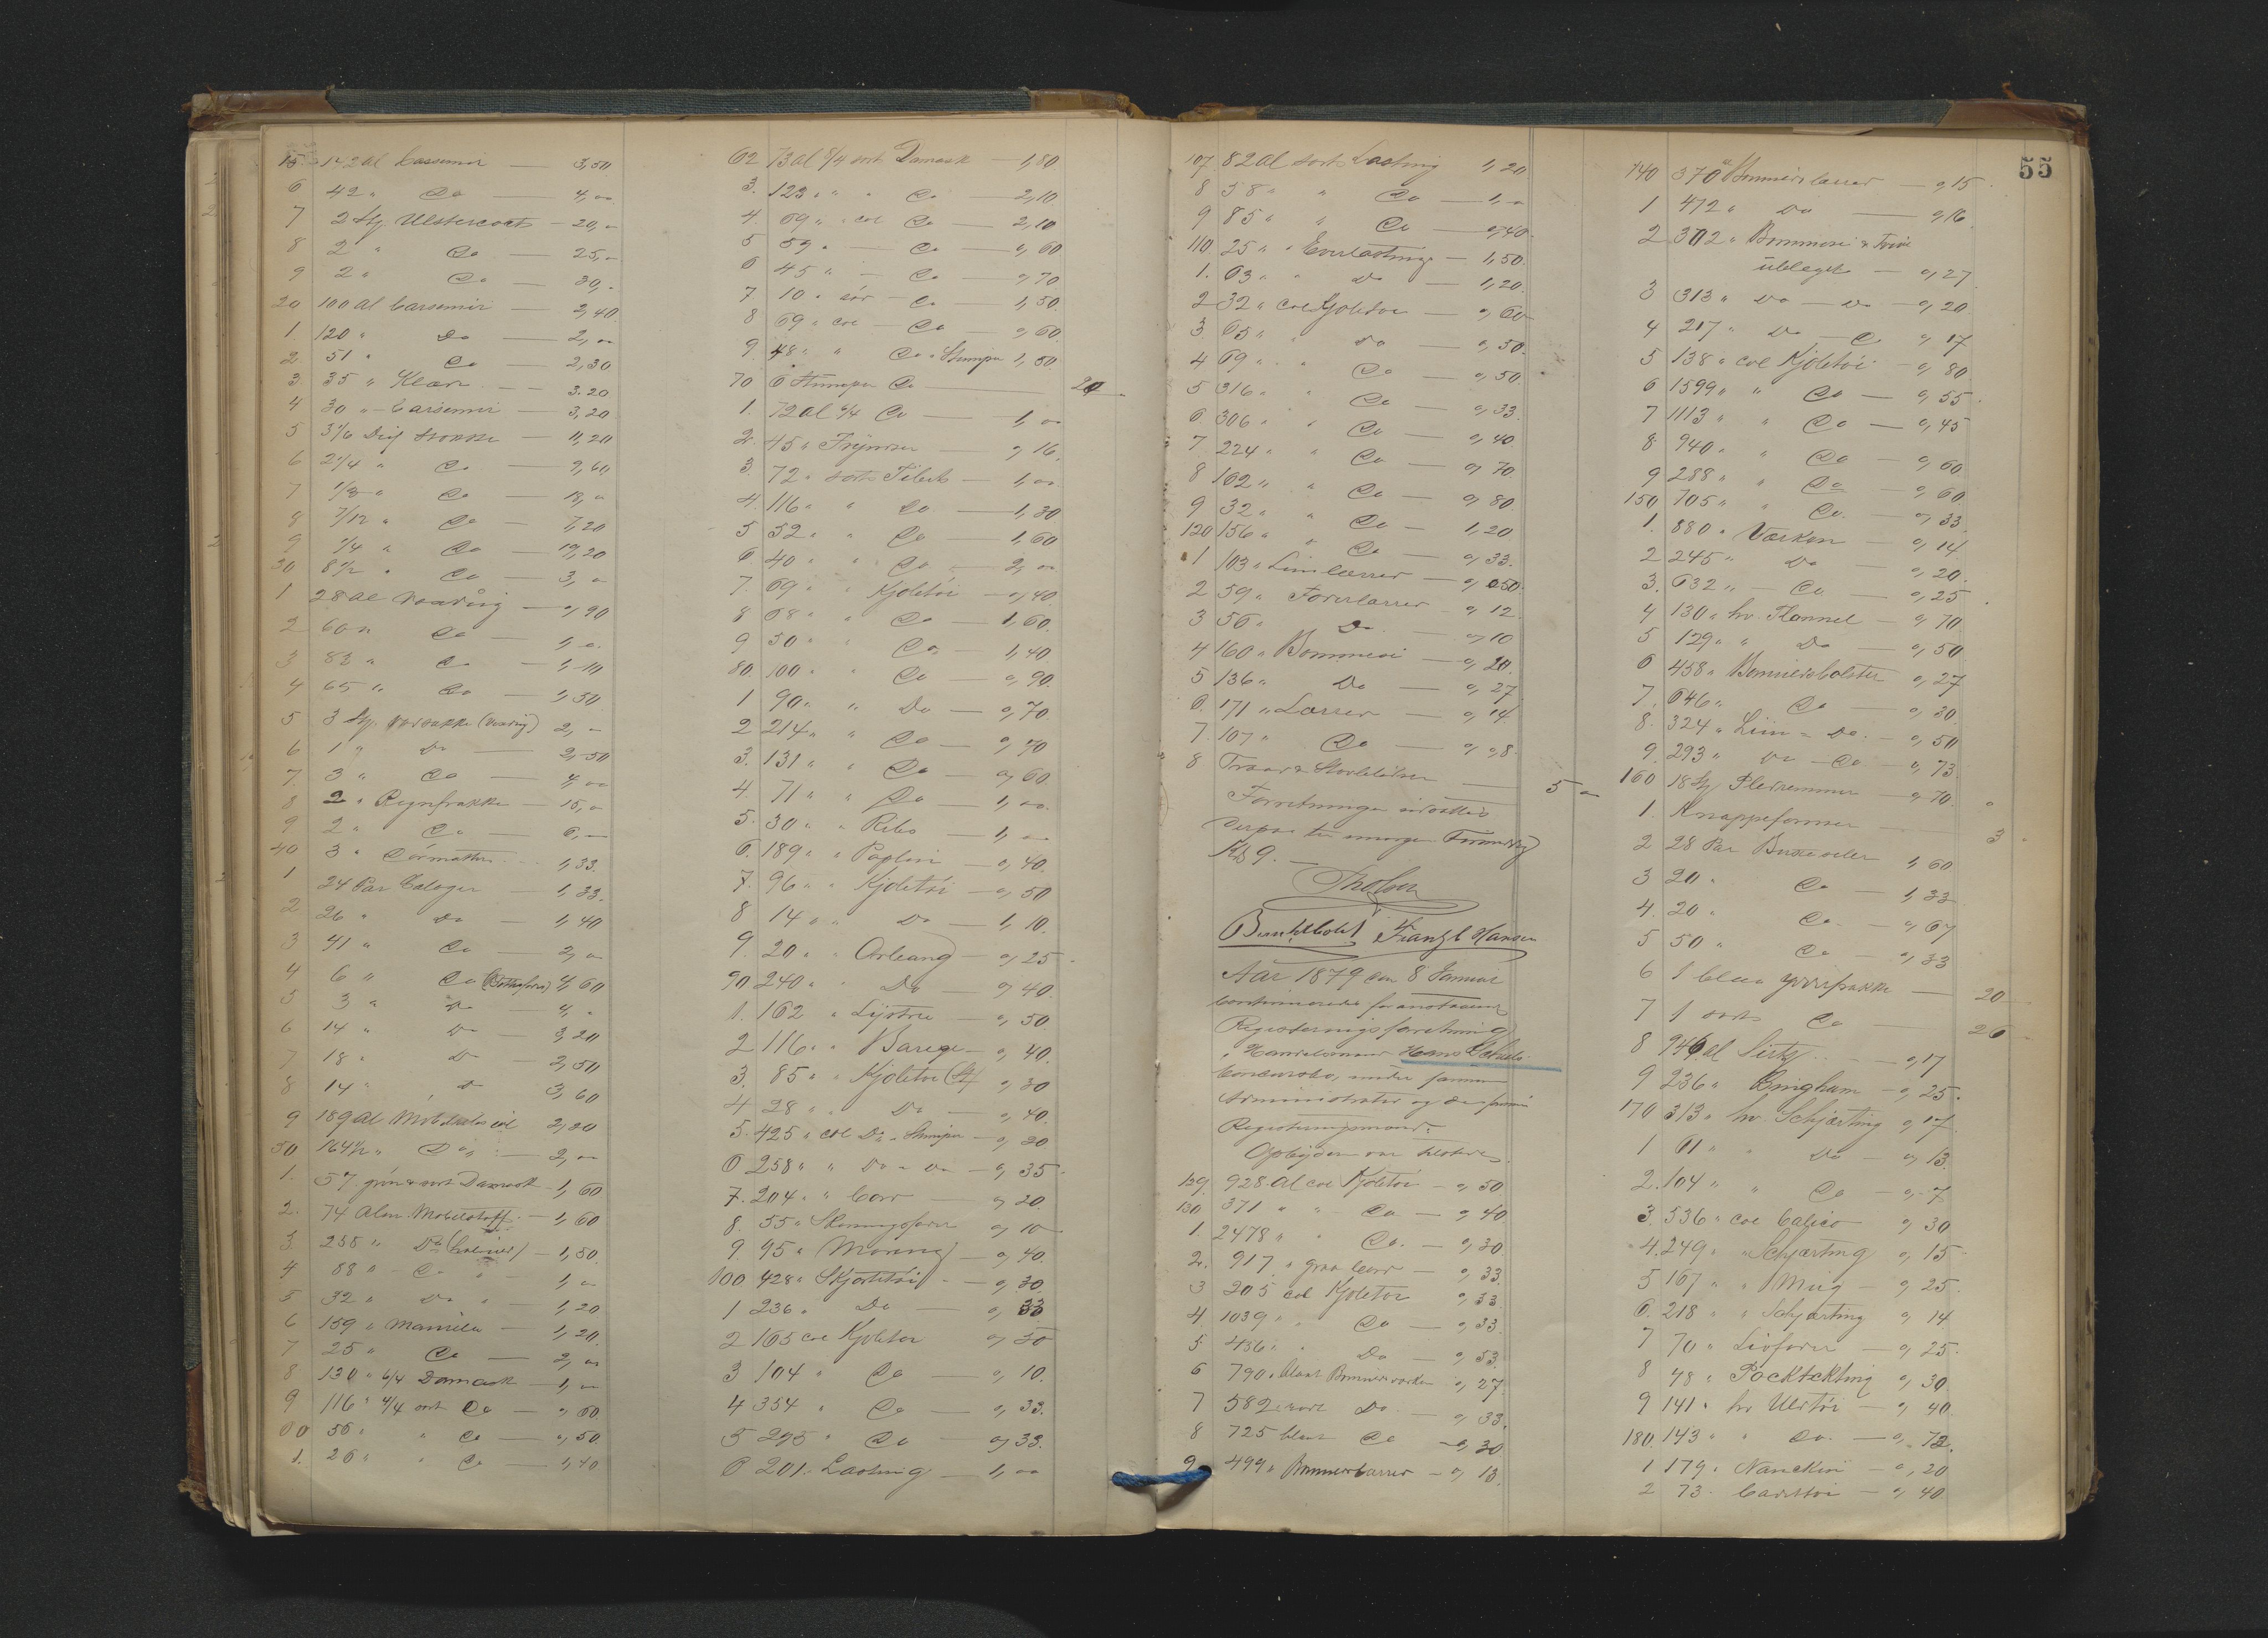 15 142 al Cassemir — 3,50
6 42 " Do — 4,00
7 2 Stk Ulstercoats — 20,"
8 2 " Do — 25,"
9 2 " Do — 30,"
20 100 al Carsemir — 2,40
1. 120 " Do — 2,00
2. 51 " Do — 2,30
3. 35 " Klæde — 3.20
4 30 " Carsemir — 3,20
5 3 1/6 Dus — 11,20
6 2 1/4 " Do — 9,60
7 1/3 " Do — 18,"
8 7/12 " Do — 7,20
9 1/4 " Do — 19,20
30 8 1/2 " Do — 3,"
1 28 al Voxdug — 0,90
2 60 " Do — 1,"
3 83 " Do — 1,10
4 65 " Do — 1,50
5 3 Stk (Voxdug) 2,"
6 1 " Do — 2,50
7 3 " Do — 4,00
8 2 " Regnfrakke — 15,"
9 2 " Do — 6,"
40 3 " Dörmatter — 1,33.
1 24 Par Caloger — 1,33.
2 26 " Do — 1,40
3 41 " Do — 2,"
4 6 " Do 4,60
5 3 " Do 4,"
6 14 " Do 3,20
7 18 " Do 2,50
8 14 " Do 3,60
9 189 al 2,20
50 164 1/2 " Do — 2,00
1. 57 grön & sort Damask 1,60
2. 74 Alen Mobelstoff — 1,60
3. 258 " Do — 1,80
4 88 " Do " 1,"
5 32 " Do " 1,20
6 159 " Manilla — 1,20
7 25 " Do — 2,00
8 130 " 6/4 Damask — 1,"
9 116 " 4/4 sort Do — 0,60.
60 56 " " Do — 0,50
1. 26 " " Do — 1,40
62 73 al 6/4 sort Damask 1,80
3. 123 " " " Do — 2,10
4. 69 " " col Do — 2,10
5 59 " — Do — 0,60
6 45 " — Do — 0,70
7 10 " — Do — 1,50
8 69 " col — Do — 0,60
9 48 " " Do " Stumper 1,50
70 6 Stumper Do — 20
1. 72 al 6/4 Do — 1,00
2. 45 " 0,16
3. 72 " sort Tibet — 1,00
4. 116 " " Do — 1,30
5 52 " " Do — 1,60
6 40 " " Do — 2,00
7. 69 " " Kjoletöi — 0,40
8 68 " " Do — 1,60
9 50 " " Do — 1,40
80. 100 " " Do — 0,90
1 90 " " Do — 0,70
2 214 " " Do — 0,70
3. 131 " " Do — 0,60
4 71 " " Do — 1,00
5. 30 " " Ribs — 1,"
6. 189 " " Poplin — 0,40
7. 96 " " Kjoletöi — 0,50
8 14 " " Do — 1,10.
9. 20 " " Orleang — 0,25
90 240 " " Do — 0,40
1. 162 " Lystre — 0,50
2 116 " " Barege — 0,40.
3. 85 " " Kjoletöi 0,30
4 28 " " Do — 0,40.
5. 425 " col Do " Stumper — 0,20
6 258 " " Do " Do — 0,35
7. 204 " " Carr — 0,20
8. 55 " Skoningsfoder 0,10
9. 95 " Moreng — 0,40
100 428 " Skjortetöi — 0,30
1 236 " Do — 0,33
2 165 col Kjoletöi 0,50
3 104 " Do — 0,10.
4 354 " Do — 0,33.
5 295 " Do — 0,33.
6 201 " Lasting — 1,00
107 82 al sort Lasting 1,20
8 58 " " Do — 1,"
9 85 " " Do — 0,40
110 25 " " Everlasting — 1,50.
1. 63 " " Do — 1,20.
2 32 " col Kjoletöi — 0,60
3 65 " Do — 0,50.
4 69 " " Do — 0,50
5 316 " " Do — 0,33.
6 306 " " Do — 0,40
7 224 " " Do — 0,70
8 162 " " Do — 0,80.
9 32 " " Do — 1,20
120 156 " " Do — 0,33.
1 103 " Liinlærred — 0,50
2 59 " Foerlærred — 0,12
3 56 " Do — 0,10
4 160 " Bommesi — 0,20.
5 136 " Do — 0,27
6 171 " Lærred — 0,14
7. 107 " Do — 0,08
8 Traad & — 5 "
Forretningen udsattes
derpaa til imorgen
Kl 9.—
Tholsen
Franz C Hansen
Aar 1879 den 8 Januar
continueredes foranstaaende
Registreringsforretning
i Handelsmand Hans
Concursbo, under samme
Administrator og de samme
Registreringsmænd.
Opbyden var tilstede.
129. 928 al col Kjoletöi — 0,50
130 371 " " Do — 0,40
1. 2478 " " Do. — 0,30
2. 917 " graa Carr — 0,33
3 205 col Kjoletöi 0,33
4 1039 " " Do — 0,33.
5 436 " " Do — 0,53.
6 790 " blaat 0,27
7 582 " sort Do — 0,33.
8 725 blaat Do — 0,30
9 499 " Bommerlærred — 0,13.
55
140 370 " Bommerslærred — 0,15
1 472 " Do — 0,16
2 302 " Bommesi & Toie
ubleget — 0,27
3 313 " Do — Do — 0,20
4 217 " Do — Do 0,17
5 138 " col Kjoletöi — 0,80
6 1599 " " Do — 0,55
7 1113 " " Do — 0,45
8 940 " " Do — 0,60
9 288 " " Do — 0,60
150 705 " " Do. — 0,33
1. 880 " Værken — 0,14
2 245 " Do — 0,20.
3. 632 " Do — 0,25
4 130 " hv. Flannel — 0,70
5 129 " " Do — 0,50
6 458 " Bommersbolster 0,27
7. 646 " Do — 0,30
8. 324 " Liin " Do. — 0,50
9. 293 " Do — Do — 0,73
160 18 Stk Pledremmer — 0,70.
1. Knappeformer — 3
2 28 Par Buxeseler 1,60
3 20 " Do — 1,33
4. 20 " Do — 0,67
5 50 " Do — 0,33
6 1 blaa — 20
7 1 sort Do — 26
8 946 al Sirts — 0,17
9 236 " Gingham — 0,25.
170 313 " hv. Schjerting 0,17
1 61 " " Do — 0,13.
2. 104 " " Do — 0,7
3. 536 " col Calico 0,30
4. 249 " " Schjerting 0,15
5 167 " " Mug — 0,25
6. 218 " " Schjerting 0,14
7 70 " Livfoder — 0,25
8 48 " 0,30
9 141 " hv Uldtöi — 0,40
180. 143 " " Do. — 0,72.
1 179 " Nanckin — 0,20
2 73 " — 0,40